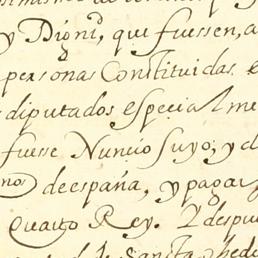 y Digni^d, que fuessen, a
personas Constituidas e
diputados especialme
fuesse Nuncio suyo, y d
nos de españa, y pagar
Quarto Rey. Y despu
de Sancta Sede